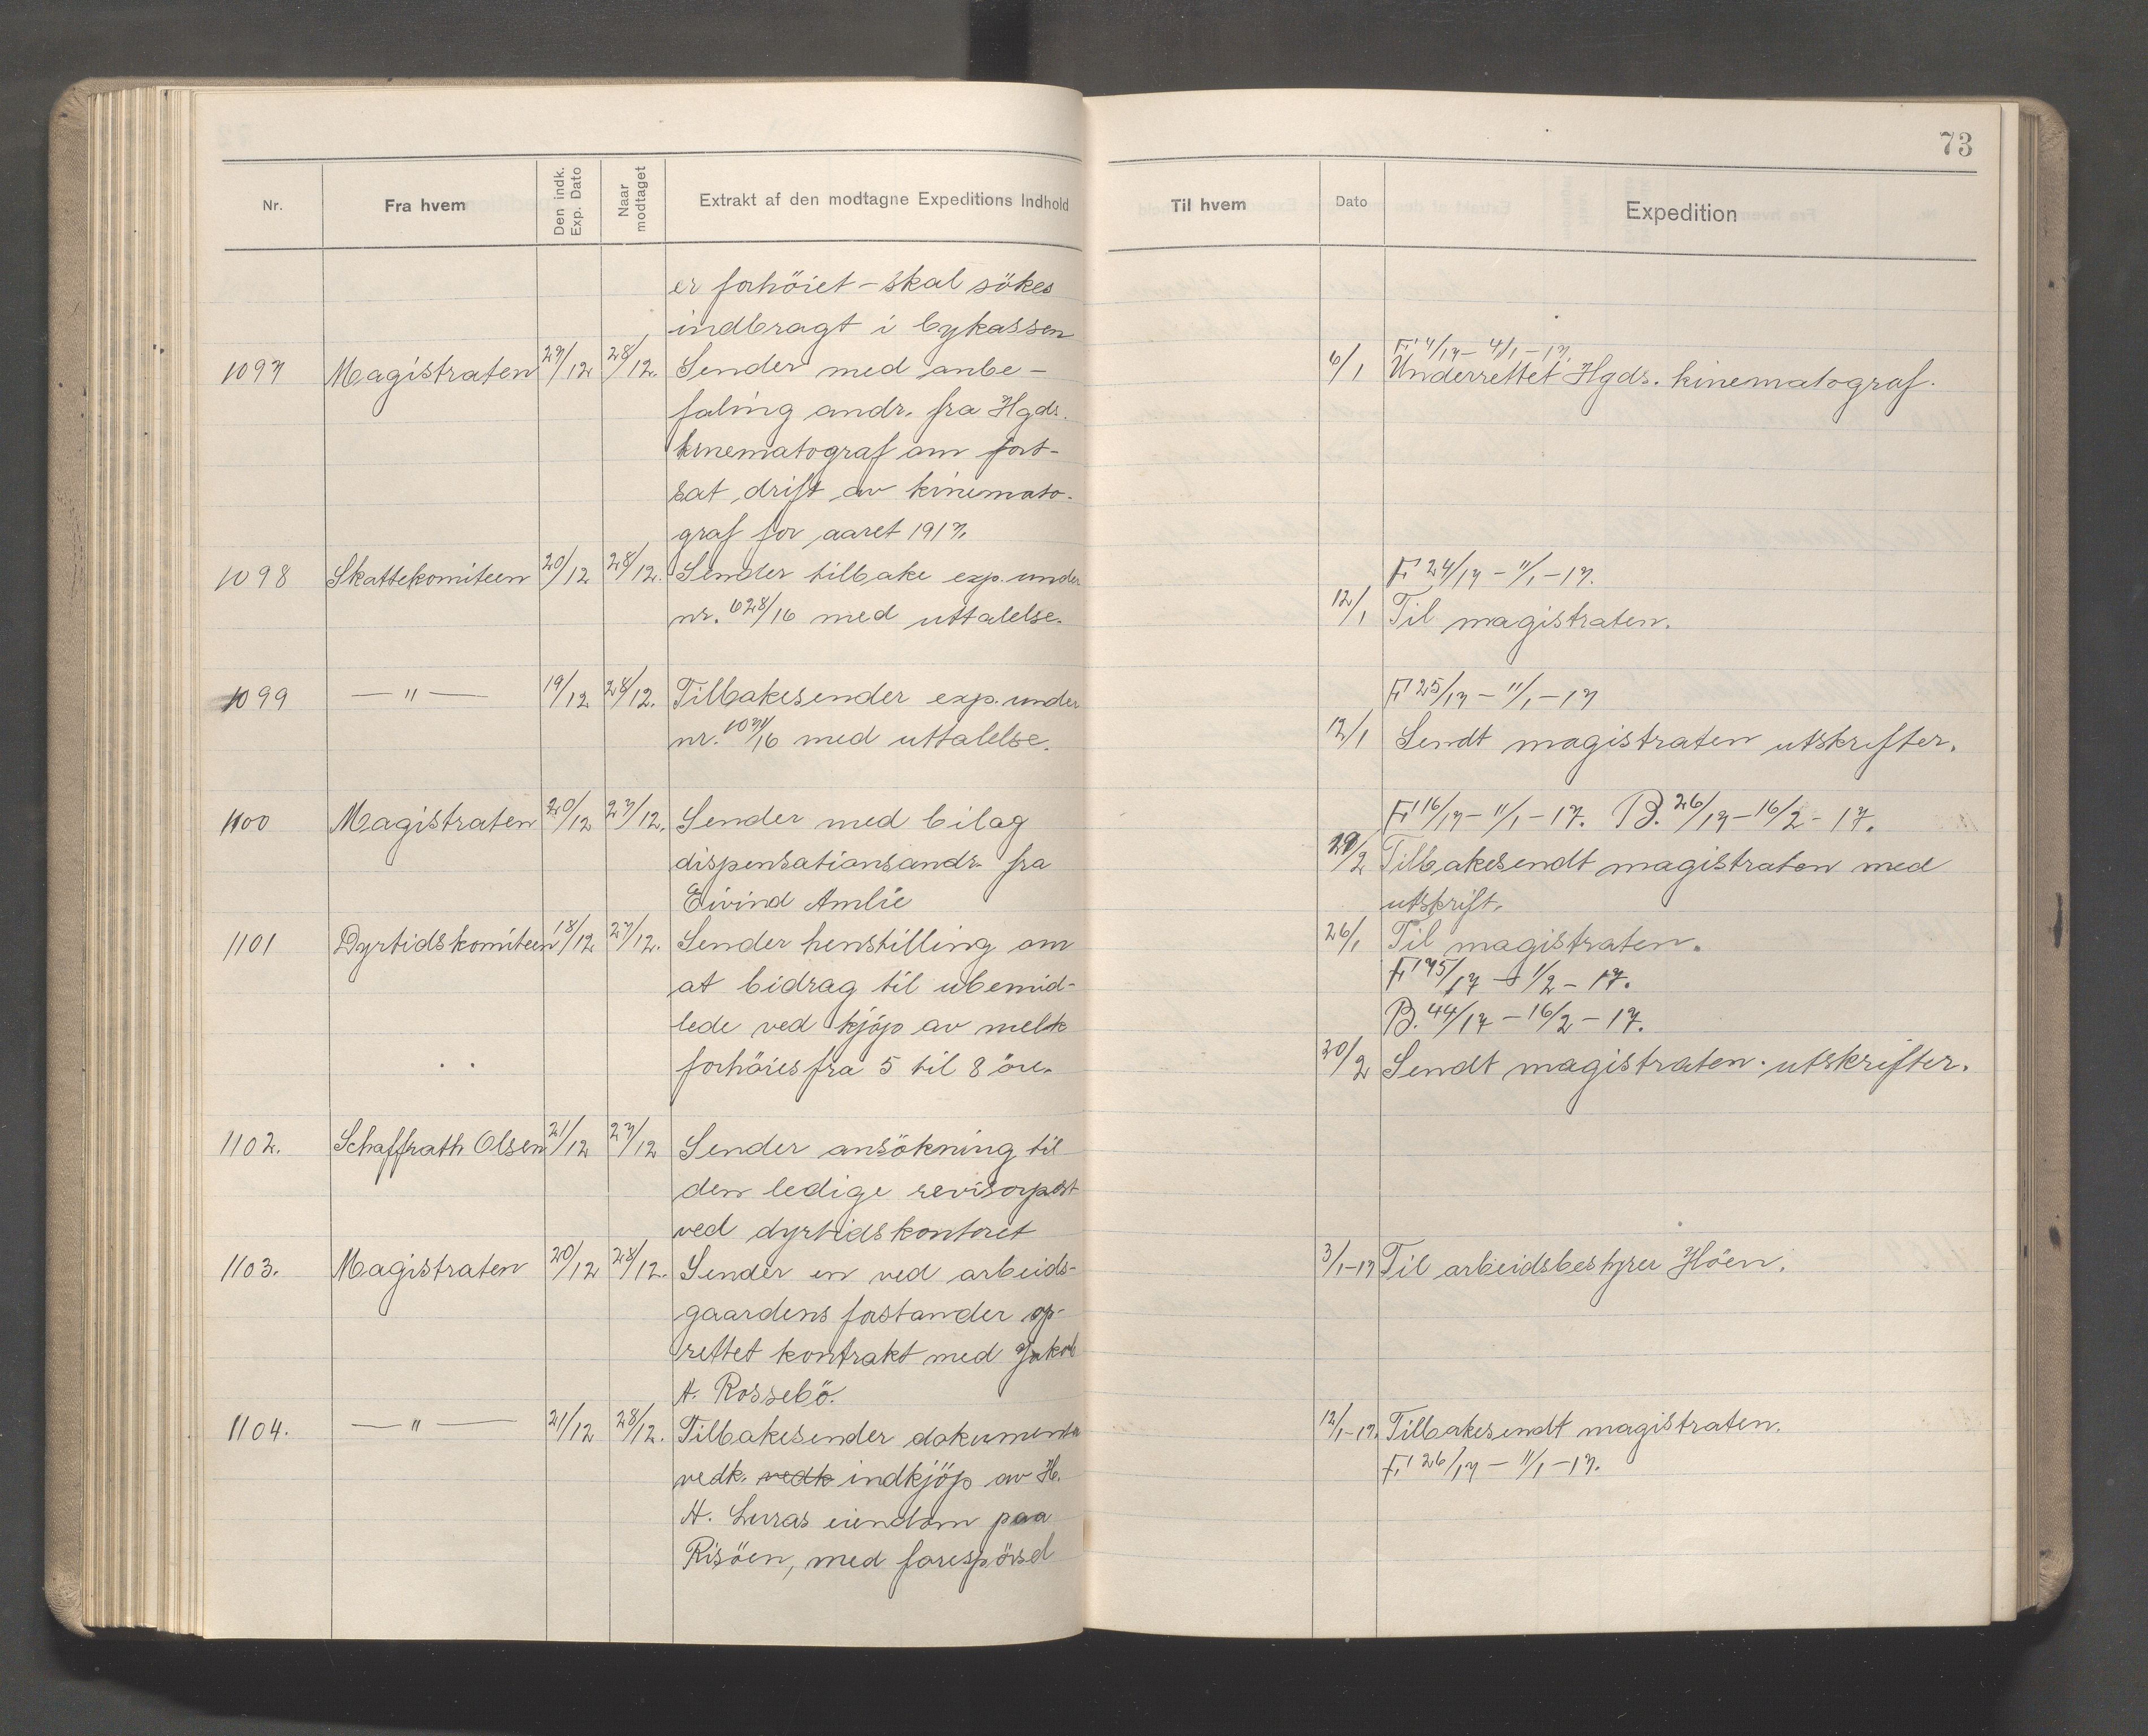 73
Nr.
Fra hvem
Den indk. Exp. Dato
Naar modtaget
Extrakt af den modtagne Expeditions Indhold
Til hvem
Dato
Expedition
er forhöiet - skal sökes
indbragt i bykassen
1097 Magistraten 27/12 28/12. Sender med anbe-
faling andr. fra Hgds.
kinematograf om fort-
sat drift av kinemato-
graf for aaret 1917.
6/1 F 4/17 - 4/1 - 17.
Underrettet Hgds. kinematograf.
1098 Skattekomiteen 20/12 28/12. Sender tilbake exp. under
nr. 628/16 med uttalelse.
F 24/17 - 11/1 - 17.
12/1 Til magistraten.
1099 — " — 19/12 28/12. Tilbakesender exp. under
nr. 1071/16 med uttalelse.
F 25/17 - 11/1 - 17
12/1 Sendt magistraten utskrifter.
1100 Magistraten 20/12 27/12. Sender med bilag
dispensationsandr. fra
Eivind Amlie
F 16/17 - 11/1 - 17. B. 26/17 - 16/2 - 17.
/2 Tilbakesendt magistraten med
utskrift.
1101 Dyrtidskomiteen 18/12 27/12. Sender henstilling om
at bidrag til ubemid-
lede ved kjöp av melk
forhöies fra 5 til 8 öre.
26/1 Til magistraten.
F 75/17 - 1/2 - 17.
B. 44/17 - 16/2 - 17.
20/2 Sendt magistraten utskrifter.
1102. Schaffrath Olsen 21/12 27/12 Sender ansökning til
den ledige revisorpost
ved dyrtidskontoret
1103. Magistraten 20/12 28/12. Sender en ved arbeids-
gaardens forstander op-
rettet kontrakt med Jakob
A. Rossebö.
3/1-17 Til arbeidsbestyrer Höen.
1104. — " — 21/12 28/12. Tilbakesender dokumenter
vedk. vedk indkjöp av H.
H. Luras eiendom paa
Risöen, med forespörsel
12/1-17. Tilbakesendt magistraten.
F 26/17 - 11/1 - 17.